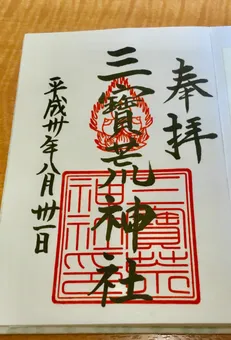 奉拝
三寳荒神社
平成卅年八月卅一日
三寳荒
神社印